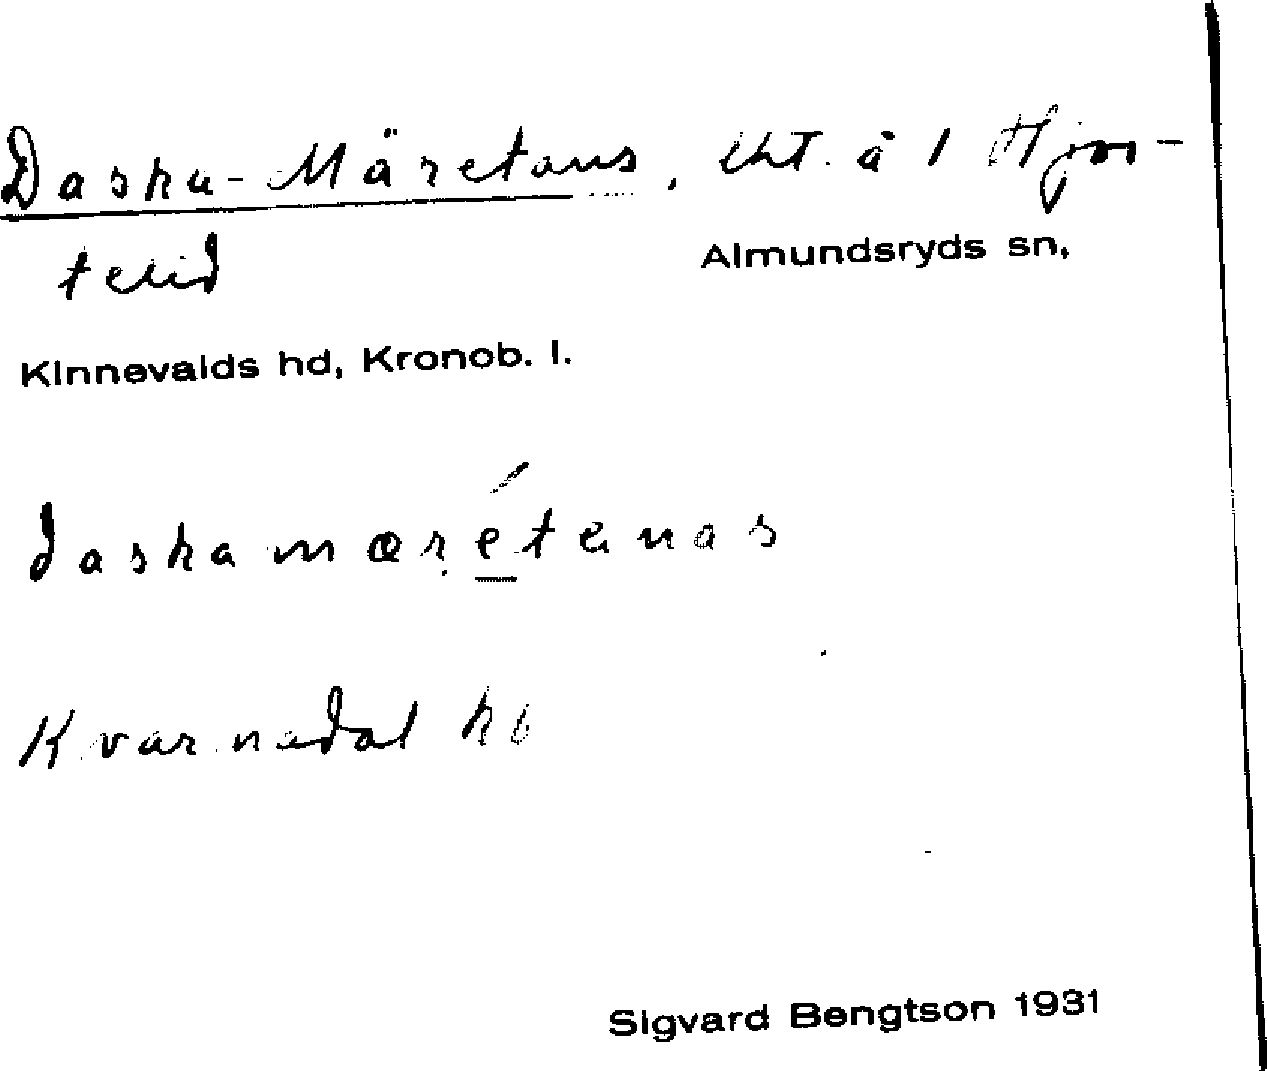 Daska-Märetans, lht. å 1 Hjor-
telid
Almundsryds sn,
Kinnevalds hd, Kronob. l.
daskamærétanas
Kvarnadal kb
Sigvard Bengtson 1931